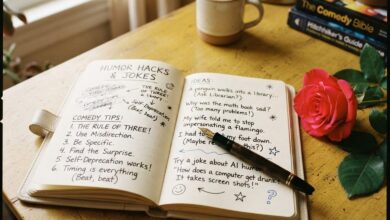 The Comedy Bible
Hitchhiker's Guide
HUMOR HACKS
& JOKES
THE RULE
OF THREE!
COMEDY TIPS!
1. THE RULE OF THREE!
2. Use Misdirection.
3. Be Specific.
4. Find the Surprise.
5. Self-Deprecation works!
6. Timing is everything
(Beat, beat)
IDEAS:
A penguin walks into a library...
(Ask Librarian?)
Why was the math book sad?
(Too many problems!)
My wife told me to stop
impersonating a flamingo.
I had to put my foot down.
(Maybe this?)
Try a joke about AI
"How does a computer get drunk?
It takes screen shots!"